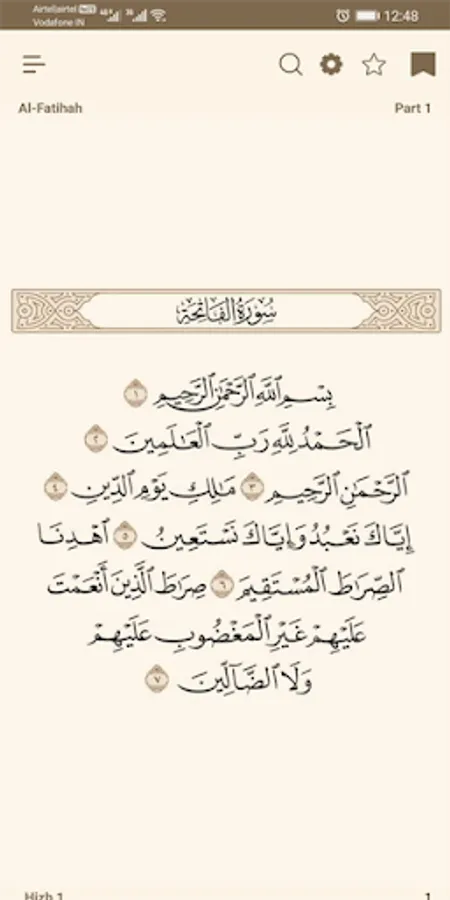 Airtel|airtel
Vodafone IN
12:48
Al-Fatihah Part 1
سُورَةُ الْفَاتِحَةِ
بِسْمِ ٱللَّهِ ٱلرَّحْمَٰنِ ٱلرَّحِيمِ ١
ٱلْحَمْدُ لِلَّهِ رَبِّ ٱلْعَٰلَمِينَ ٢
ٱلرَّحْمَٰنِ ٱلرَّحِيمِ ٣ مَٰلِكِ يَوْمِ ٱلدِّينِ ٤
إِيَّاكَ نَعْبُدُ وَإِيَّاكَ نَسْتَعِينُ ٥ ٱهْدِنَا
ٱلصِّرَٰطَ ٱلْمُسْتَقِيمَ ٦ صِرَٰطَ ٱلَّذِينَ أَنْعَمْتَ
عَلَيْهِمْ غَيْرِ ٱلْمَغْضُوبِ عَلَيْهِمْ
وَلَا ٱلضَّآلِّينَ ٧
Hizb 1 1